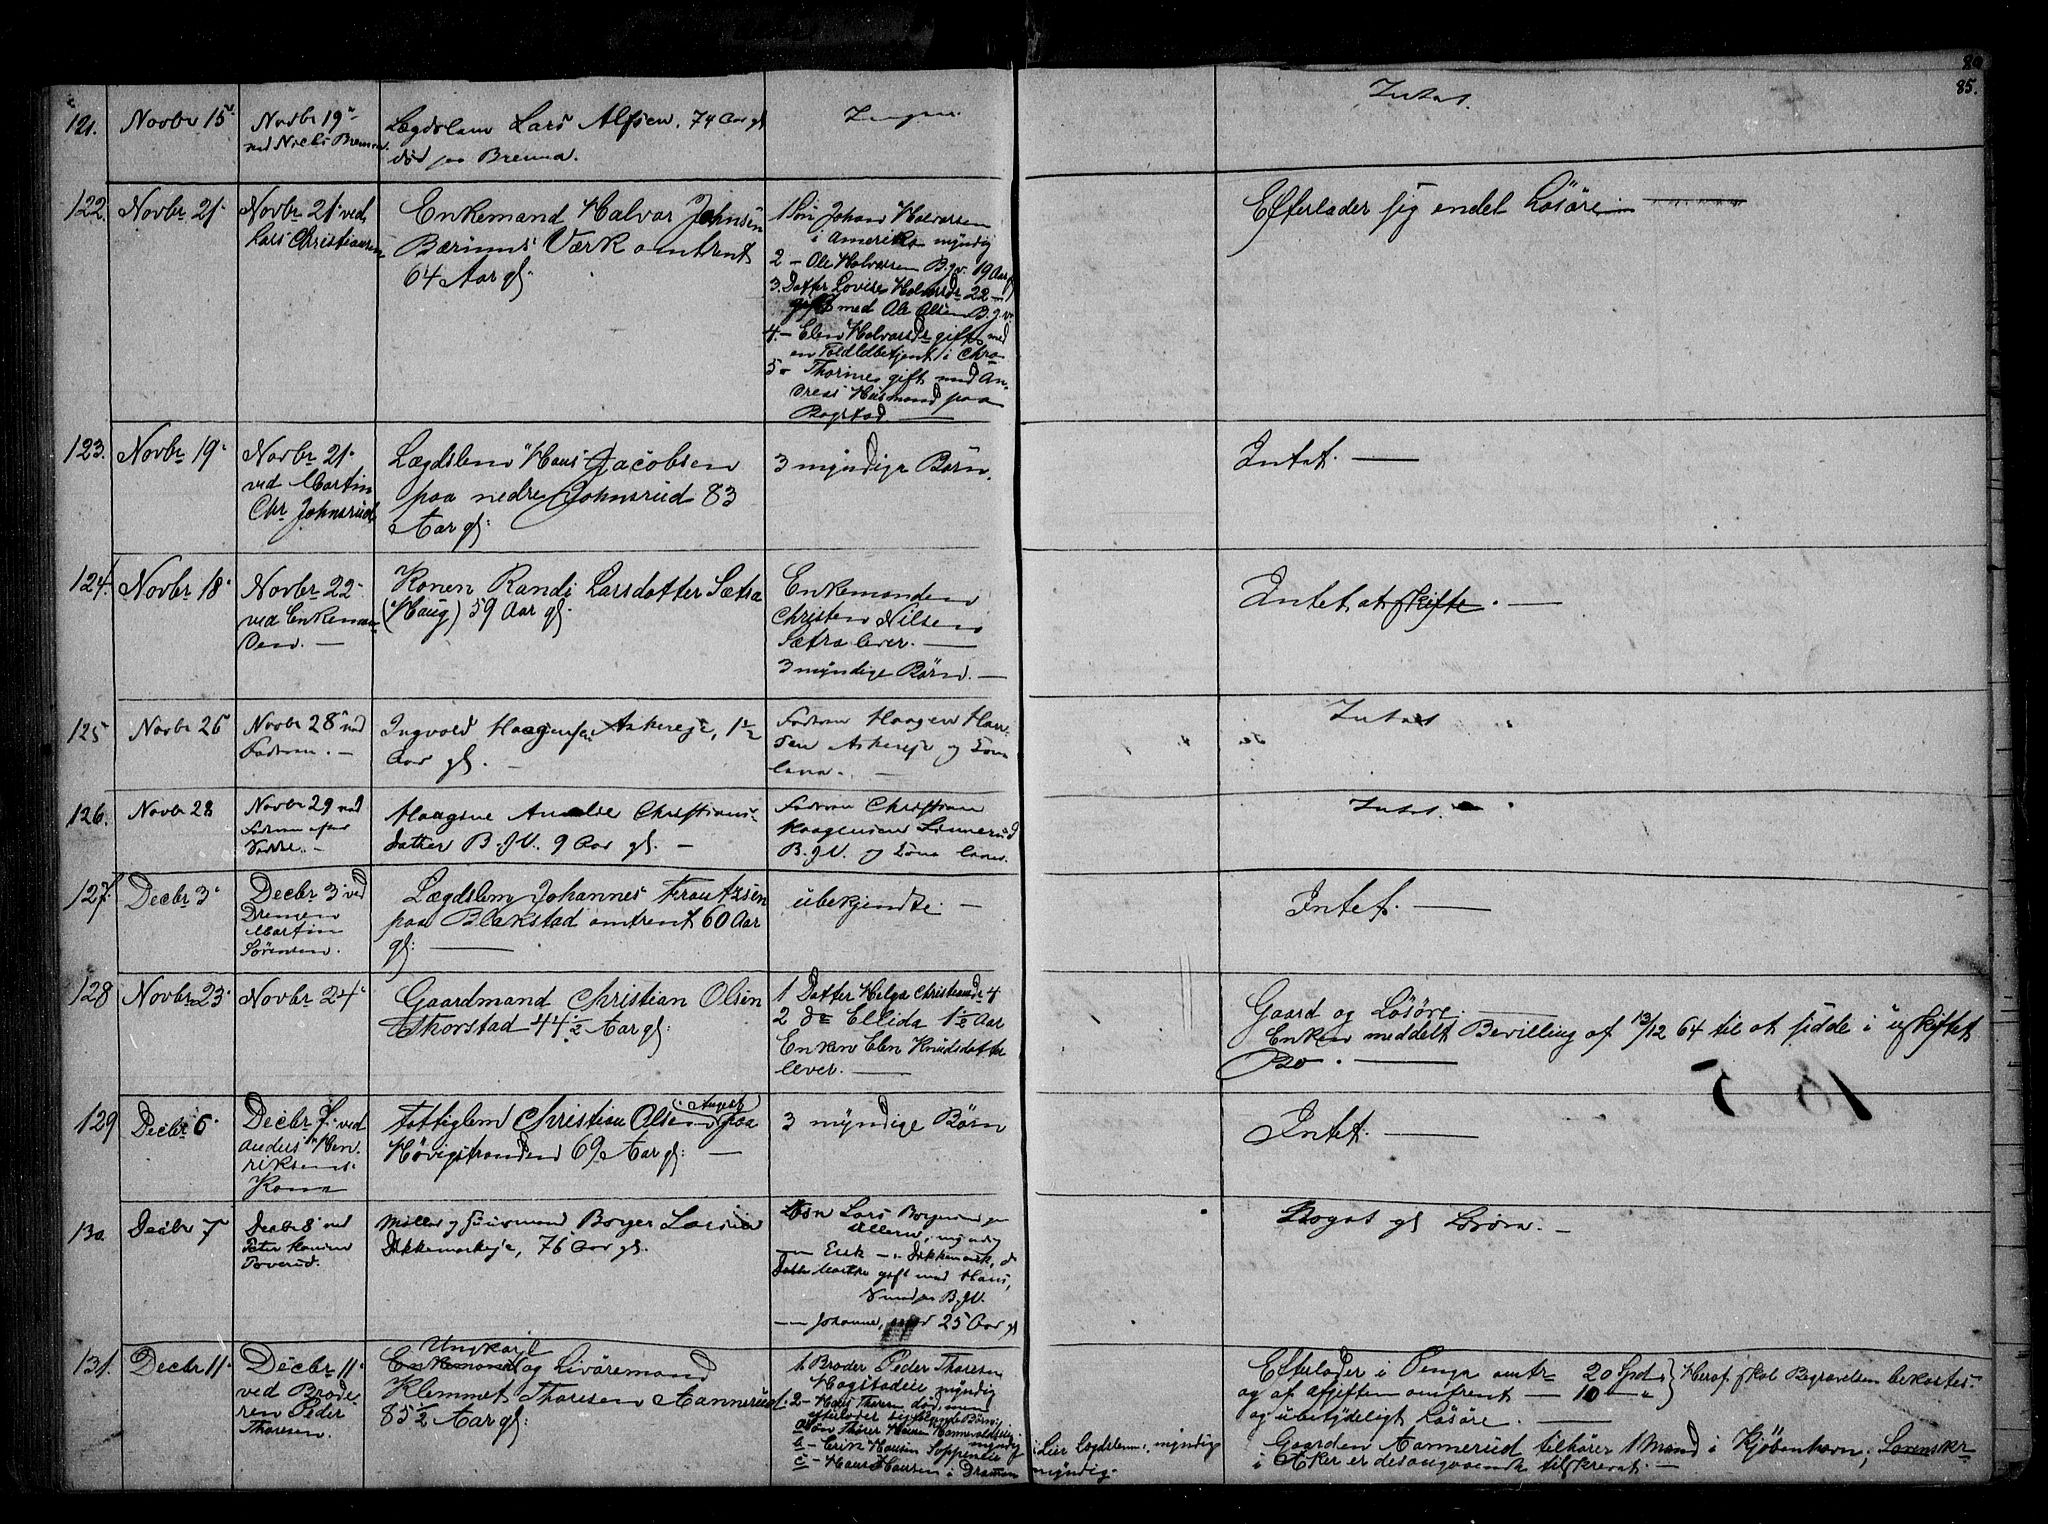 85.
121.
Novbr 15.
Novbr 19.
ved Niels Brenna.
Lægdslem Lars Alfsen. 74 Aar gl
død paa Brenna.
Ingen.
Intet.
122.
Novbr 21.
Novbr 21. ved
Lars Christiansen
Enkemand Halvor Johnsen
Bærums Værk omtrent
64 Aar gl.
1 Søn Johan Halvorsen
i Amerika myndig
2 - Ole Halvorsen B.gv. 19 Aar gl
3. Datter Lovise Halvorsdr 22 -
gift med Ole Olsen B.g.v.
4. - Elen Halvorsdr gift med
en Toldbetjent i Chra
5 - Thorine gift med An-
dreas Husmand paa
Bogstad. —
Efterlader sig endel Løsøre —
123.
Novbr 19.
Novbr 21.
ved Martin
Chr. Johnsrud
Lægdslem Hans Jacobsen
paa nedre Johnsrud 83
Aar gl.
3 myndige Børn.
Intet. —
124.
Novbr 18.
Novbr 22.
ved Enkeman-
den. —
Konen Randi Larsdatter Sætra
(Haug) 59 Aar gl.
Enkemanden
Christen Nilsen
Sætra lever. —
3 myndige Børn. —
Intet at skifte. —
125
Novbr 26
Novbr 28 ved
Fadren. —
Ingvold Haagensen Askereje, 1½
Aar gl. —
Fadren Haagen Han-
sen Askereje og Kone
lever. —
Intet
126.
Novbr 28
Novbr 29 ved
Fadren efter
Haagine Amalie Christians-
datter B.W. 9 Aar gl. —
Fadren Christian
Haagensen
B.W. og Kone lever.
Intet.
127.
Decbr 3.
Decbr 3. ved
Martin
Sørensen.
Lægdslem Johannes Frantzsen
paa Blakstad omtrent 60 Aar
gl: —
ubekjendte. —
Intet. —
128
Novbr 23.
Novbr 24.
Gaardmand Christian Olsen
Thorstad 44½ Aar gl:
1 Datter Helga Christiansdr 4
2 do Ellida 1½ Aar
Enken Elen Knudsdatter
lever. —
Gaard og Løsøre.
Enken meddelt Bevilling af 13/12 64 til at sidde i uskiftet
Bo. —
129
Decbr 6
Decbr 7. ved
Anders Hen-
riksens
Kone
Fattiglem Christian Olsen (August) paa
Høvigstranden 69 Aar gl: —
3 myndige Børn
Intet. —
130
Decbr 7
Decbr 8. ved
Møller og Huusmand Borger Larsen
Dikkemarkeje, 76 Aar gl.
Søn Lars Borgersen
myndig
— Erik — Dikkemark, do
Datter Marthe gift med Hans
B.W.
— Johanne, 25 Aar gl
Noget gl Løsøre. —
131.
Decbr 11.
Decbr 11.
ved Brode-
ren Peder
Thoresen.
Ungkarl
Enkemand og Livøremand
Klemmet Thoresen Aannerud
85½ Aar gl:
1. Broder Peder Thoresen
myndig
2 - Hans Thoresen død, men
efterlader sig Børn:
a Søn Thore Hansen
myndig
b - Erik Hansen
c - Hans Hansen i Drammen
i Lier Lægdslem, myndig
myndig.
Efterlader i Penge omtr 20 Spd. } Heraf skal Begravelsen bekostes.
og af afgiften omtrent — 10 —
og ubetydeligt Løsøre. —
Gaarden Aannerud tilhører 1 Mand i Kjøbenhavn; Sorenskr
i Aker er desangaaende tilskrevet. —